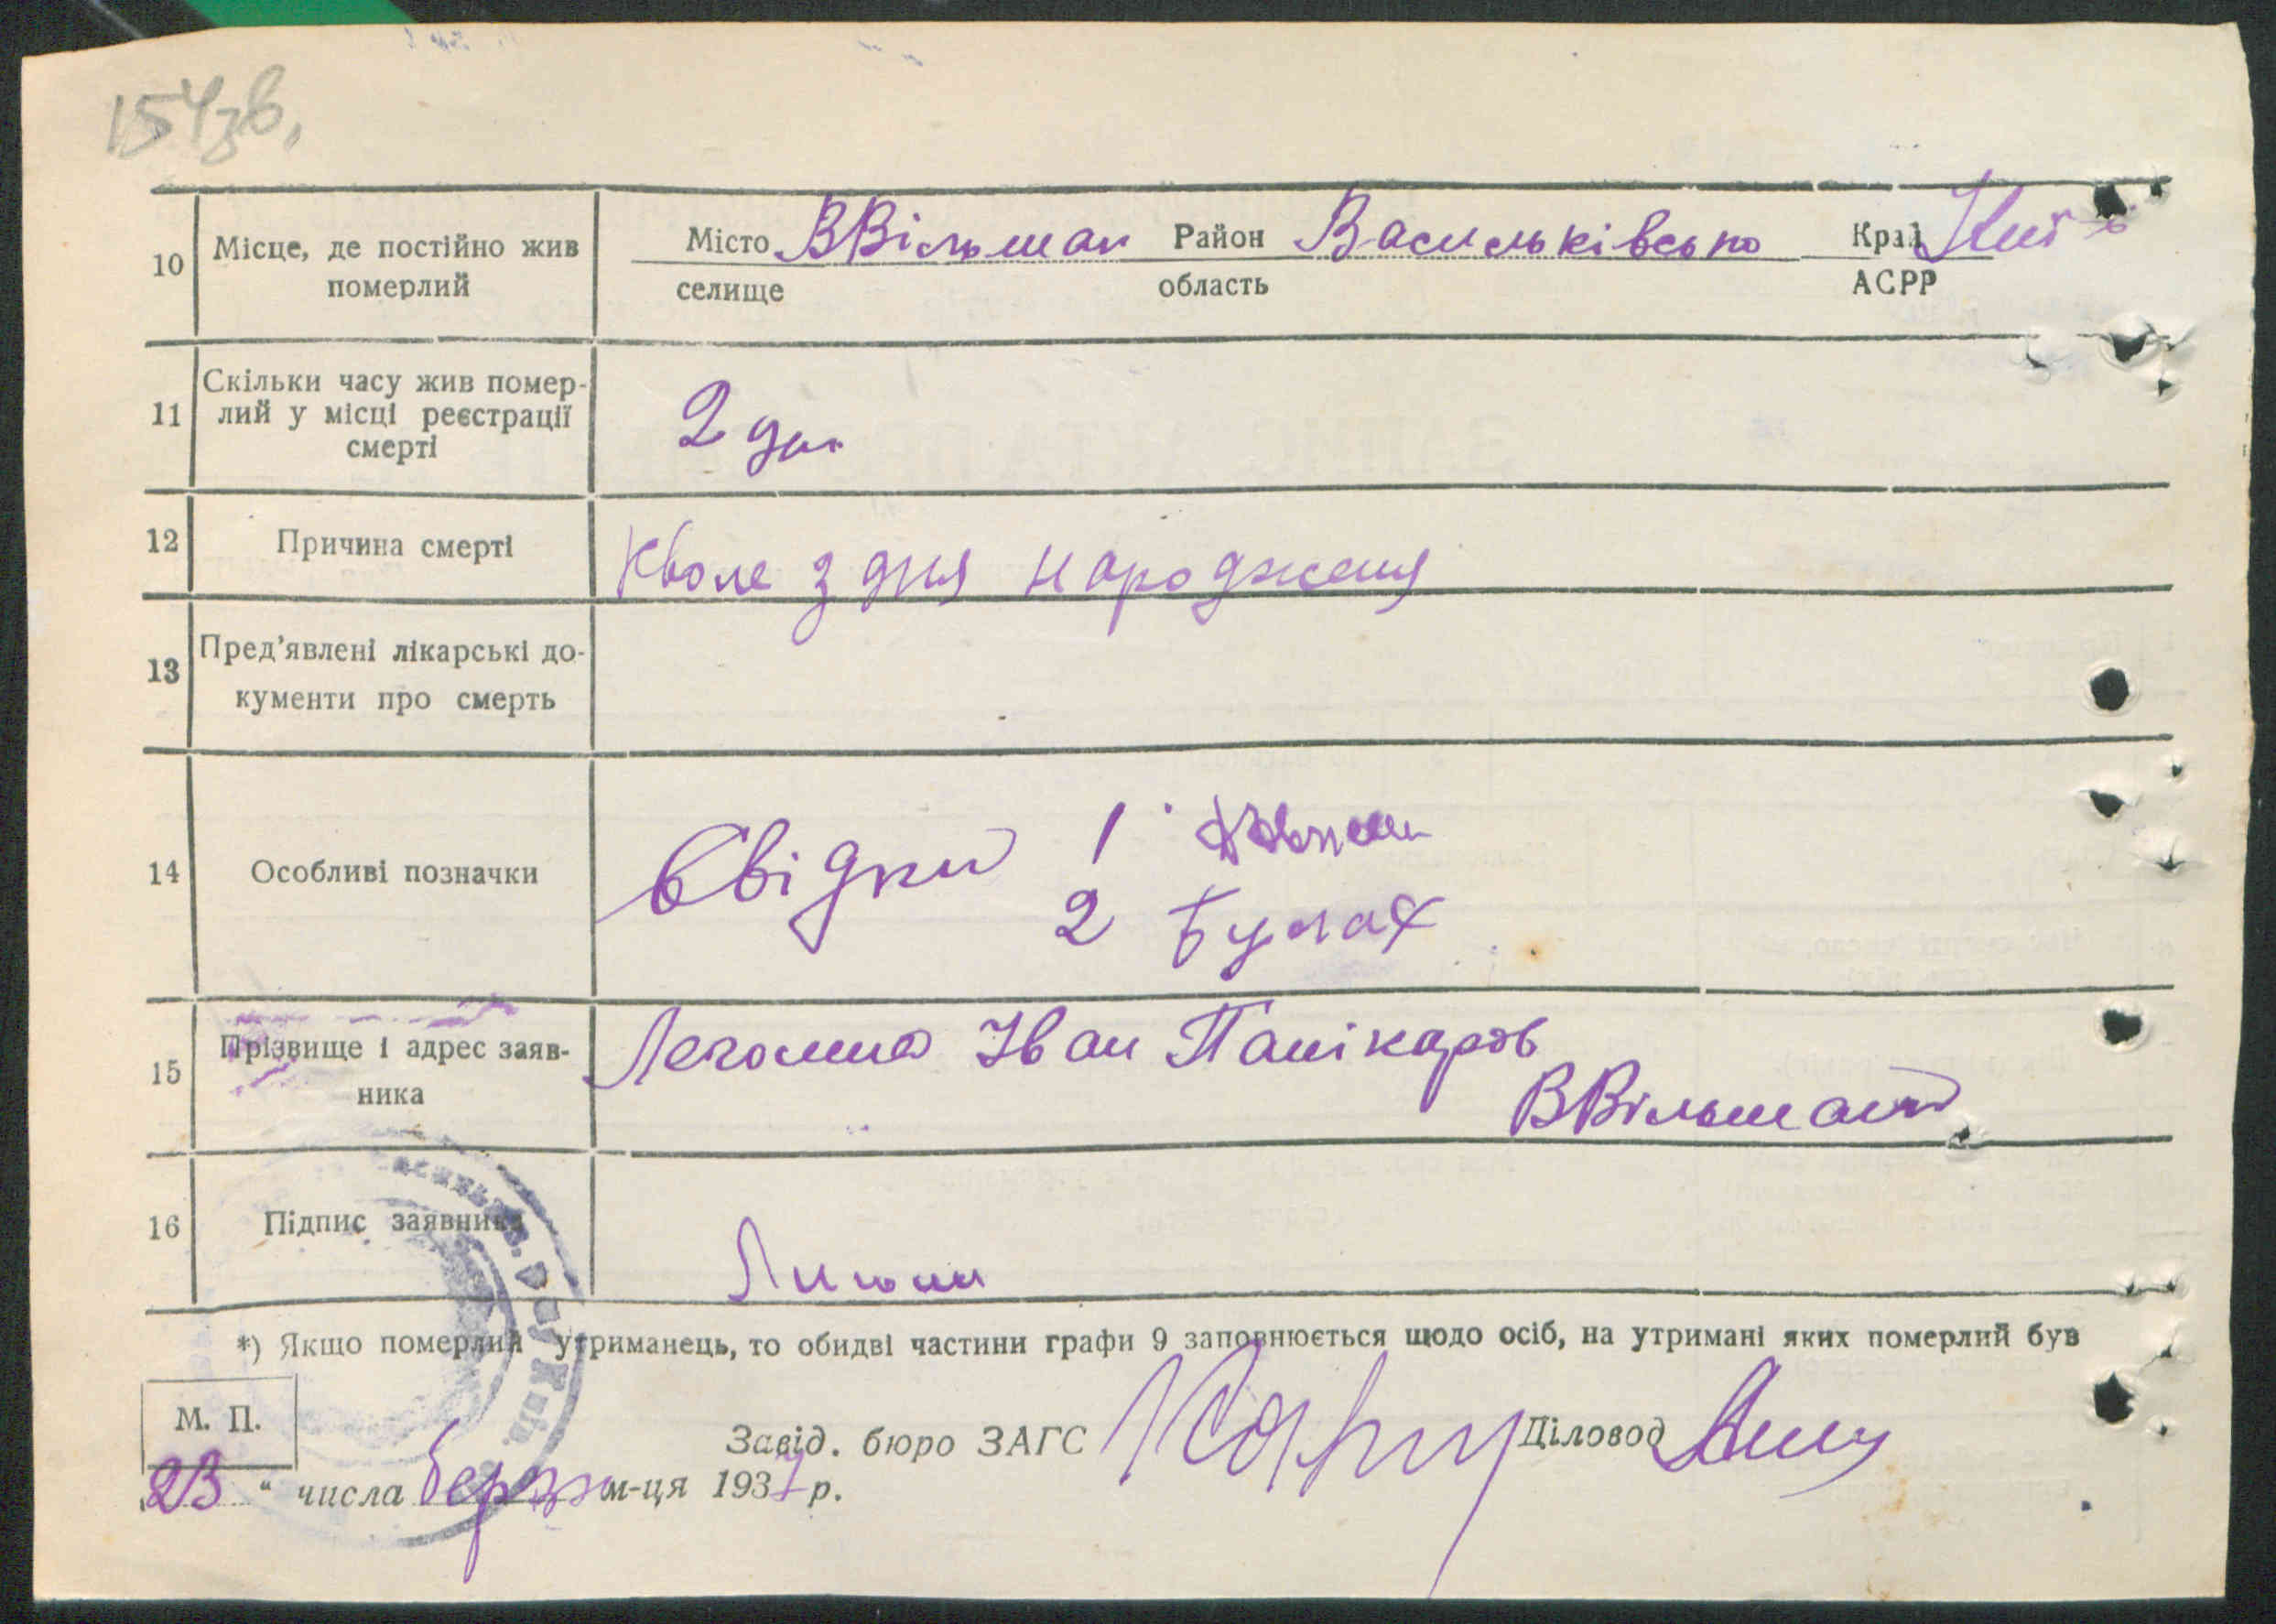 154зв.
10 Місце, де постійно жив померлий
Місто ВВільшан Район Васильківсько Край Київ
селище область АСРР
11 Скільки часу жив помер-
лий у місці реєстрації
смерті
2 дні
12 Причина смерті Кволе з дня народженя
13 Пред'явлені лікарські до-
кументи про смерть
14 Особливі позначки
Свідки 1
2 Булах
15 Прізвище і адрес заяв-
ника
Іван
ВВільшан
16 Підпис заявника
*) Якщо померлий утриманець, то обидві частини графи 9 заповнюється щодо осіб, на утримані яких померлий був
М. П.
Завід. бюро ЗАГС Діловод
23 " числа березня м-ця 1937 р.